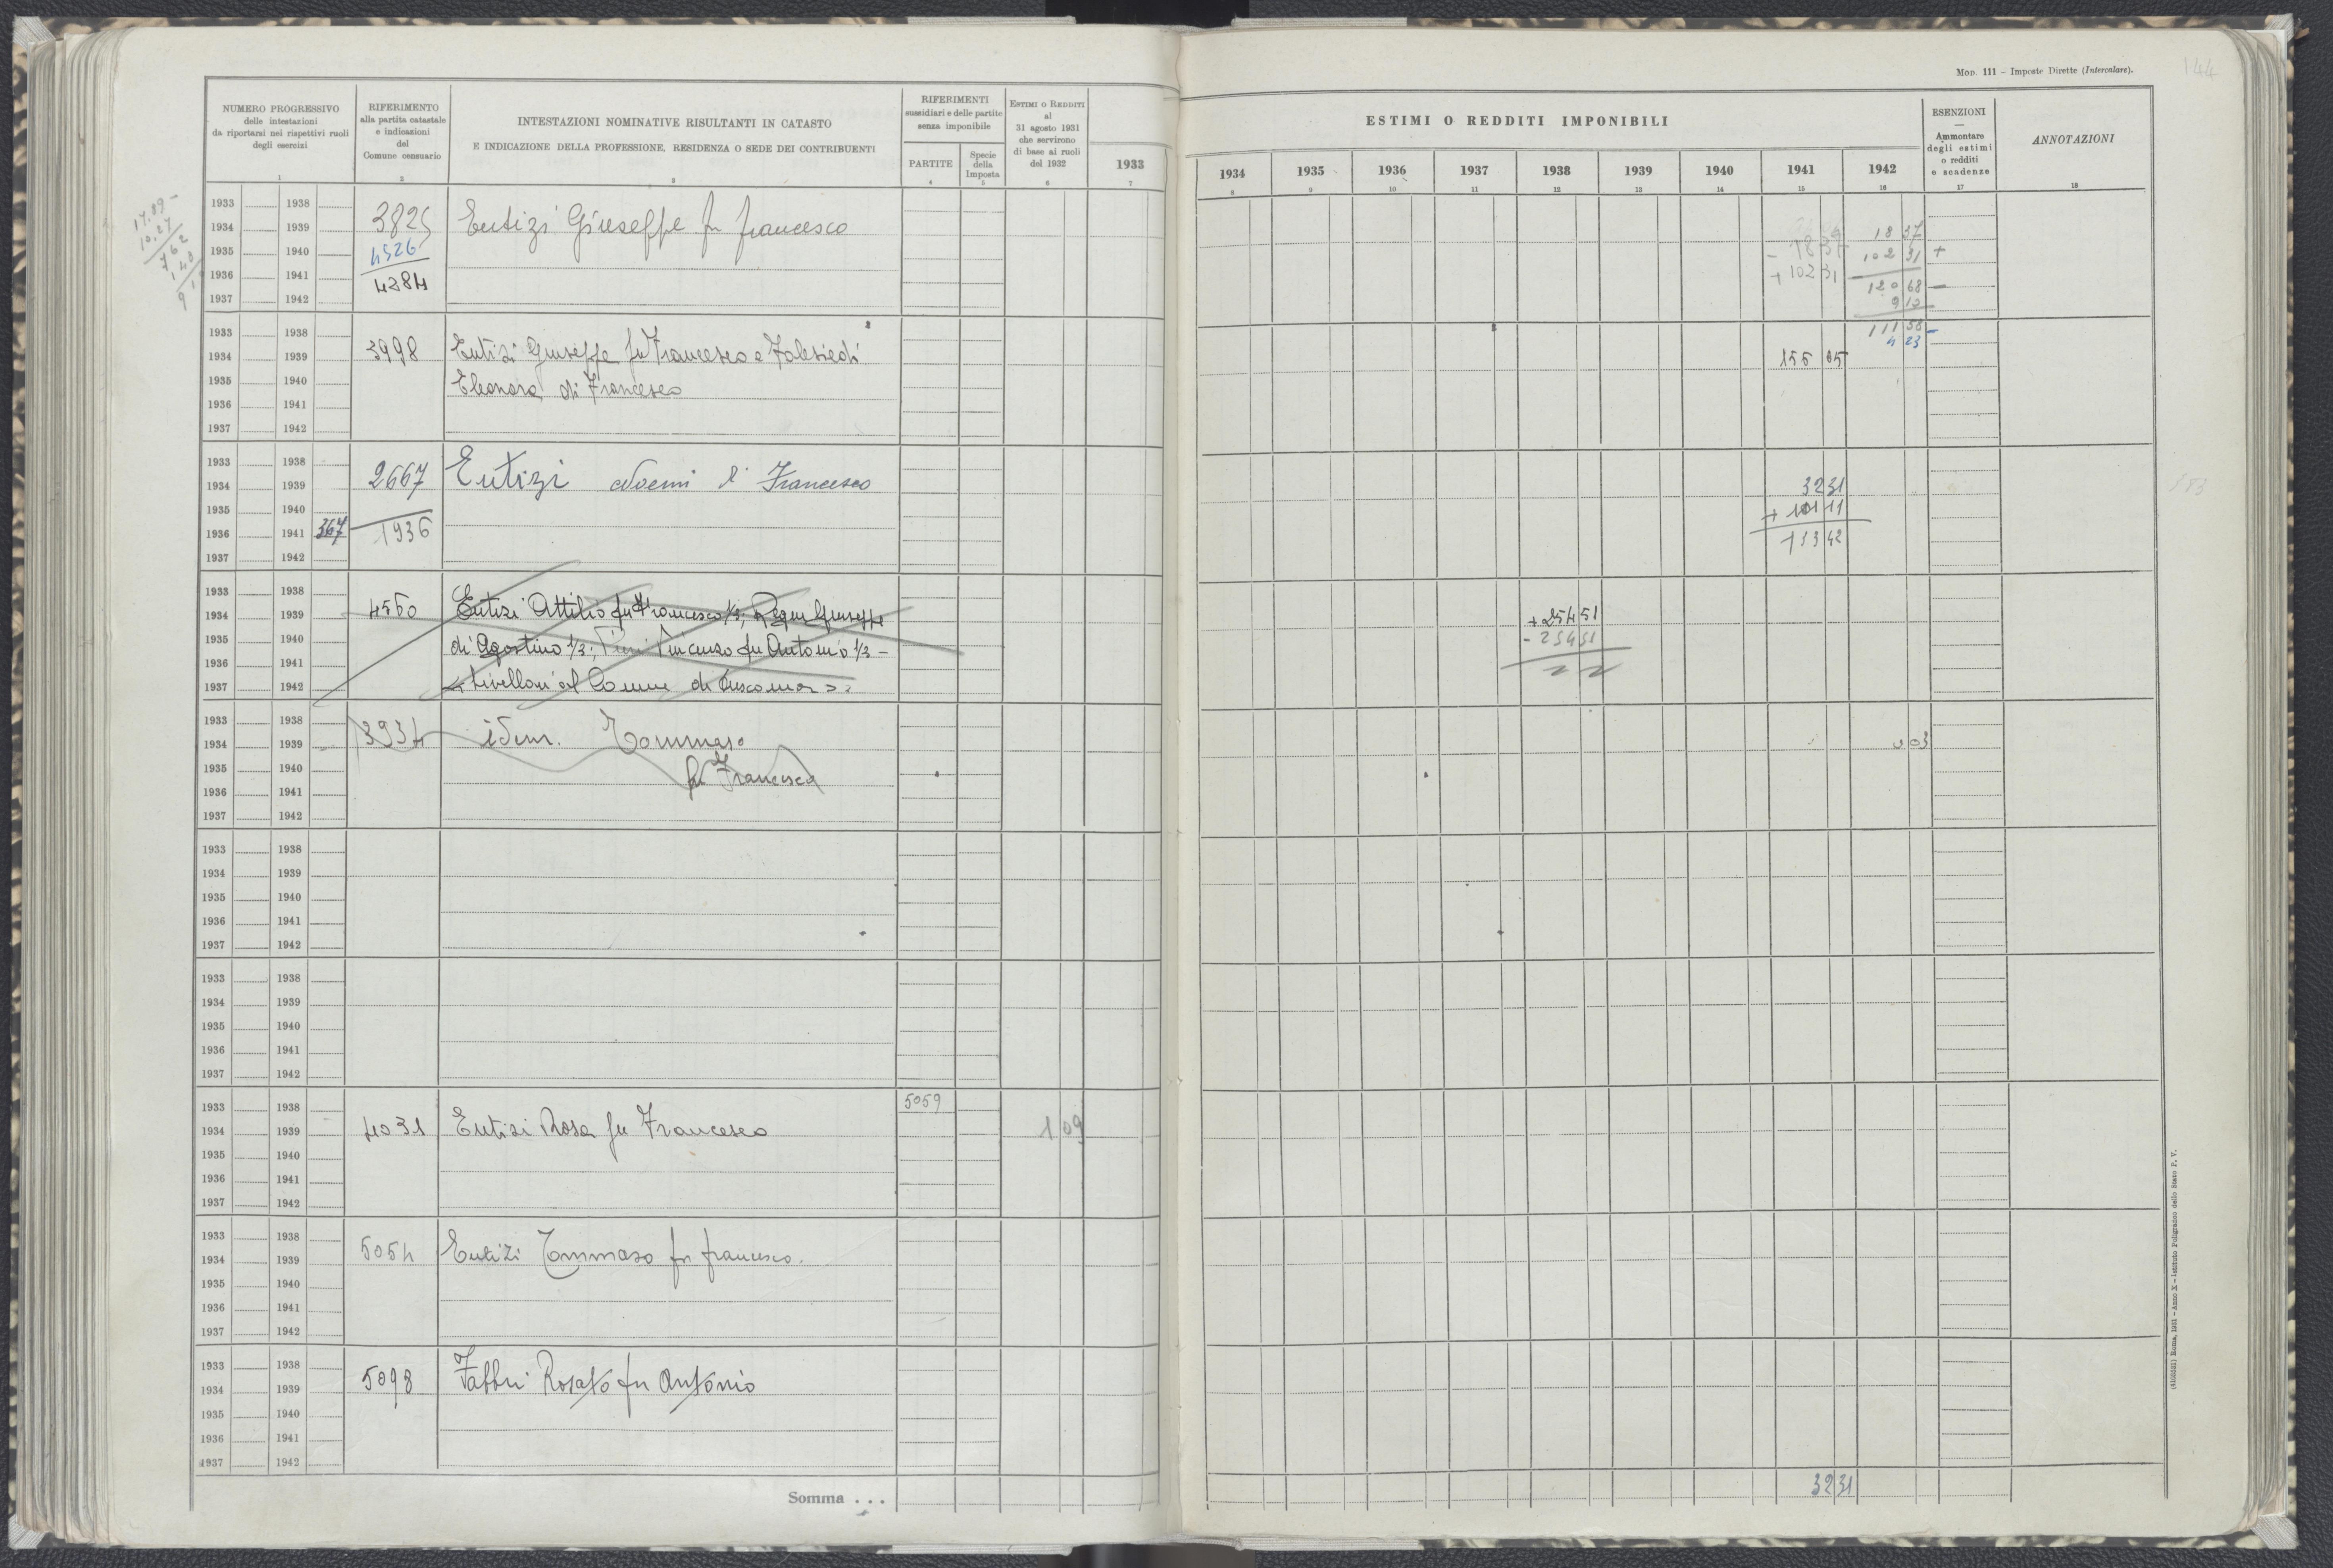 Mod. 111 - Imposte Dirette (Intercalare).
144
NUMERO PROGRESSIVO
delle intestazioni
da riportarsi nei rispettivi ruoli
degli esercizi
1
RIFERIMENTO
alla partita catastale
e indicazioni
del
Comune censuario
2
INTESTAZIONI NOMINATIVE RISULTANTI IN CATASTO
E INDICAZIONE DELLA PROFESSIONE, RESIDENZA O SEDE DEI CONTRIBUENTI
3
RIFERIMENTI
sussidiari e delle partite
senza imponibile
PARTITE
4
Specie
della
Imposta
5
ESTIMI O REDDITI
al
31 agosto 1931
che servirono
di base ai ruoli
del 1932
6
1933
7
ESTIMI O REDDITI IMPONIBILI
1934 1935 1936 1937 1938 1939 1940 1941 1942
8 9 10 11 12 13 14 15 16
ESENZIONI
—
Ammontare
degli estimi
o redditi
e scadenze
17
ANNOTAZIONI
18
17.89 -
10,27
762
1933 1938
1934 1939 3825 Eutizi Giuseppe fu francesco 18 37
1935 1940 4526 - 18 37 102 31 +
1936 1941 4284 + 102 31 120 68 -
1937 1942 9 10 -
111 58 -
4 23
1933 1938
1934 1939 3998 Eutizi Giuseppe fu Francesco e
1935 1940 Eleonora di Francesco
1936 1941
1937 1942
1933 1938
1934 1939 2667 Eutizi Noemi di Francesco 32 31
1935 1940 + 101 11
1936 1941 367 1936 133 42
1937 1942
1933 1938
1934 1939 4560 Eutizi Attilio fu Francesco 1/3; Giuseppe + 254 51
1935 1940 di Agostino 1/3; Vincenzo fu Antonio 1/3 - - 254 51
1936 1941
1937 1942 livellari al Comune di
1933 1938
1934 1939 3934 idem. Tommaso 0 03
1935 1940 fu Francesco
1936 1941
1937 1942
1933 1938
1934 1939
1935 1940
1936 1941
1937 1942
1933 1938
1934 1939
1935 1940
1936 1941
1937 1942
1933 1938 5059
1934 1939 4031 Eutizi Rosa fu Francesco 1 09
1935 1940
1936 1941
1937 1942
1933 1938
1934 1939 5054 Eutizi Tommaso fu francesco.
1935 1940
1936 1941
1937 1942
1933 1938
1934 1939 5098 Fabbri Rosato fu Antonio
1935 1940
1936 1941
1937 1942
Somma . . . 32 31
(4105531) Roma, 1931 - Anno X - Istituto Poligrafico dello Stato P. V.